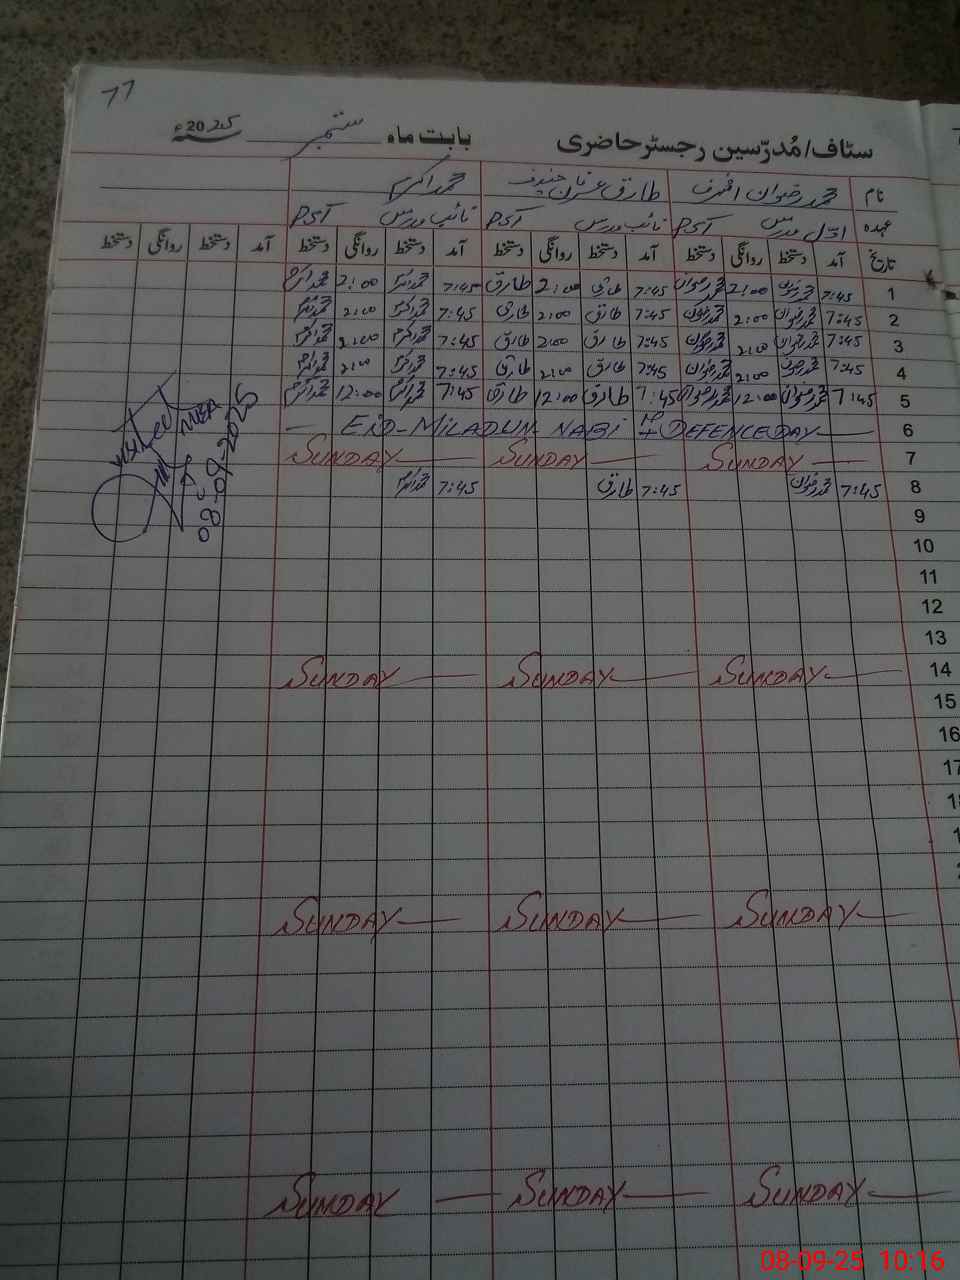 77
سٹاف/مُدرّسین رجسٹر حاضری بابت ماہ ستمبر 2025ء
نام محمد رضوان اشرف طارق عرفان حنیف محمد اکرم
عہدہ اوّل مدرس PST نائب مدرس PST نائب مدرس PST
تاریخ آمد دستخط روانگی دستخط آمد دستخط روانگی دستخط آمد دستخط روانگی دستخط آمد دستخط روانگی دستخط
1 7:45 محمد رضوان 2:00 محمد رضوان 7:45 طارق 2:00 طارق 7:45 محمد اکرم 2:00 محمد اکرم
2 7:45 محمد رضوان 2:00 محمد رضوان 7:45 طارق 2:00 طارق 7:45 محمد اکرم 2:00 محمد اکرم
3 7:45 محمد رضوان 2:00 محمد رضوان 7:45 طارق 2:00 طارق 7:45 محمد اکرم 2:00 محمد اکرم
4 7:45 محمد رضوان 2:00 محمد رضوان 7:45 طارق 2:00 طارق 7:45 محمد اکرم 2:00 محمد اکرم
5 7:45 محمد رضوان 12:00 محمد رضوان 7:45 طارق 12:00 طارق 7:45 محمد اکرم 12:00 محمد اکرم
6 EID-MILADUN NABI DEFENCE DAY
7 SUNDAY SUNDAY SUNDAY
8 7:45 محمد رضوان 7:45 طارق 7:45 محمد اکرم
Visited MEA
08-09-2025
9
10
11
12
13
14 SUNDAY SUNDAY SUNDAY
15
16
17
SUNDAY SUNDAY SUNDAY
SUNDAY SUNDAY SUNDAY
08-09-25 10:16